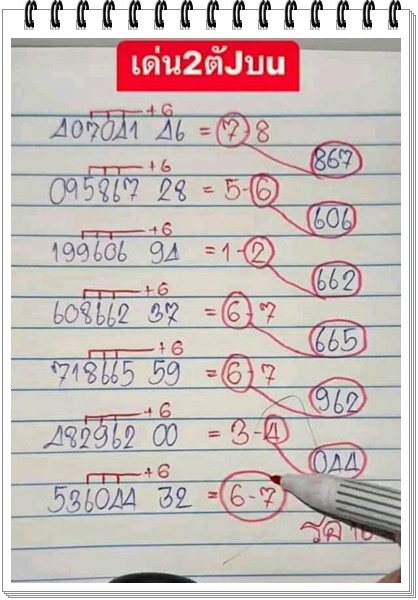 เด่น2ตัJบน
+6
407041 46 = 7-8
867
+6
095867 28 = 5-6
606
+6
199606 94 = 1-2
662
+6
608662 37 = 6-7
665
+6
718665 59 = 6-7
962
+6
482962 00 = 3-4
044
+6
536044 32 = 6-7